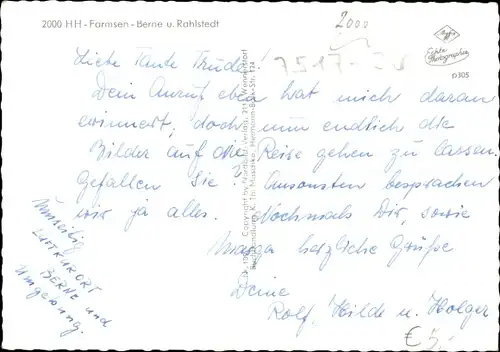 2000 HH - Farmsen - Berne u. Rahlstedt
2000
Agfa
Echte
Photographie
D 305
7517-
Liebe Tante Trude!
Dein Anruf eben hat mich daran
erinnert, doch nun endlich die
Bilder auf die Reise gehen zu lassen.
Gefallen Sie? Ansonsten besprachen
wir ja alles. Nochmals Dir, sowie
Marga herzliche Grüße
Deine
Rolf, Hilde u. Holger
Umseitig
LUFTKURORT
BERNE und
Umgebung.
Copyright by Verlag,
Buchhandlung K. Th. Maschke, Hermann-Balk-Str. 124
€ 5,-